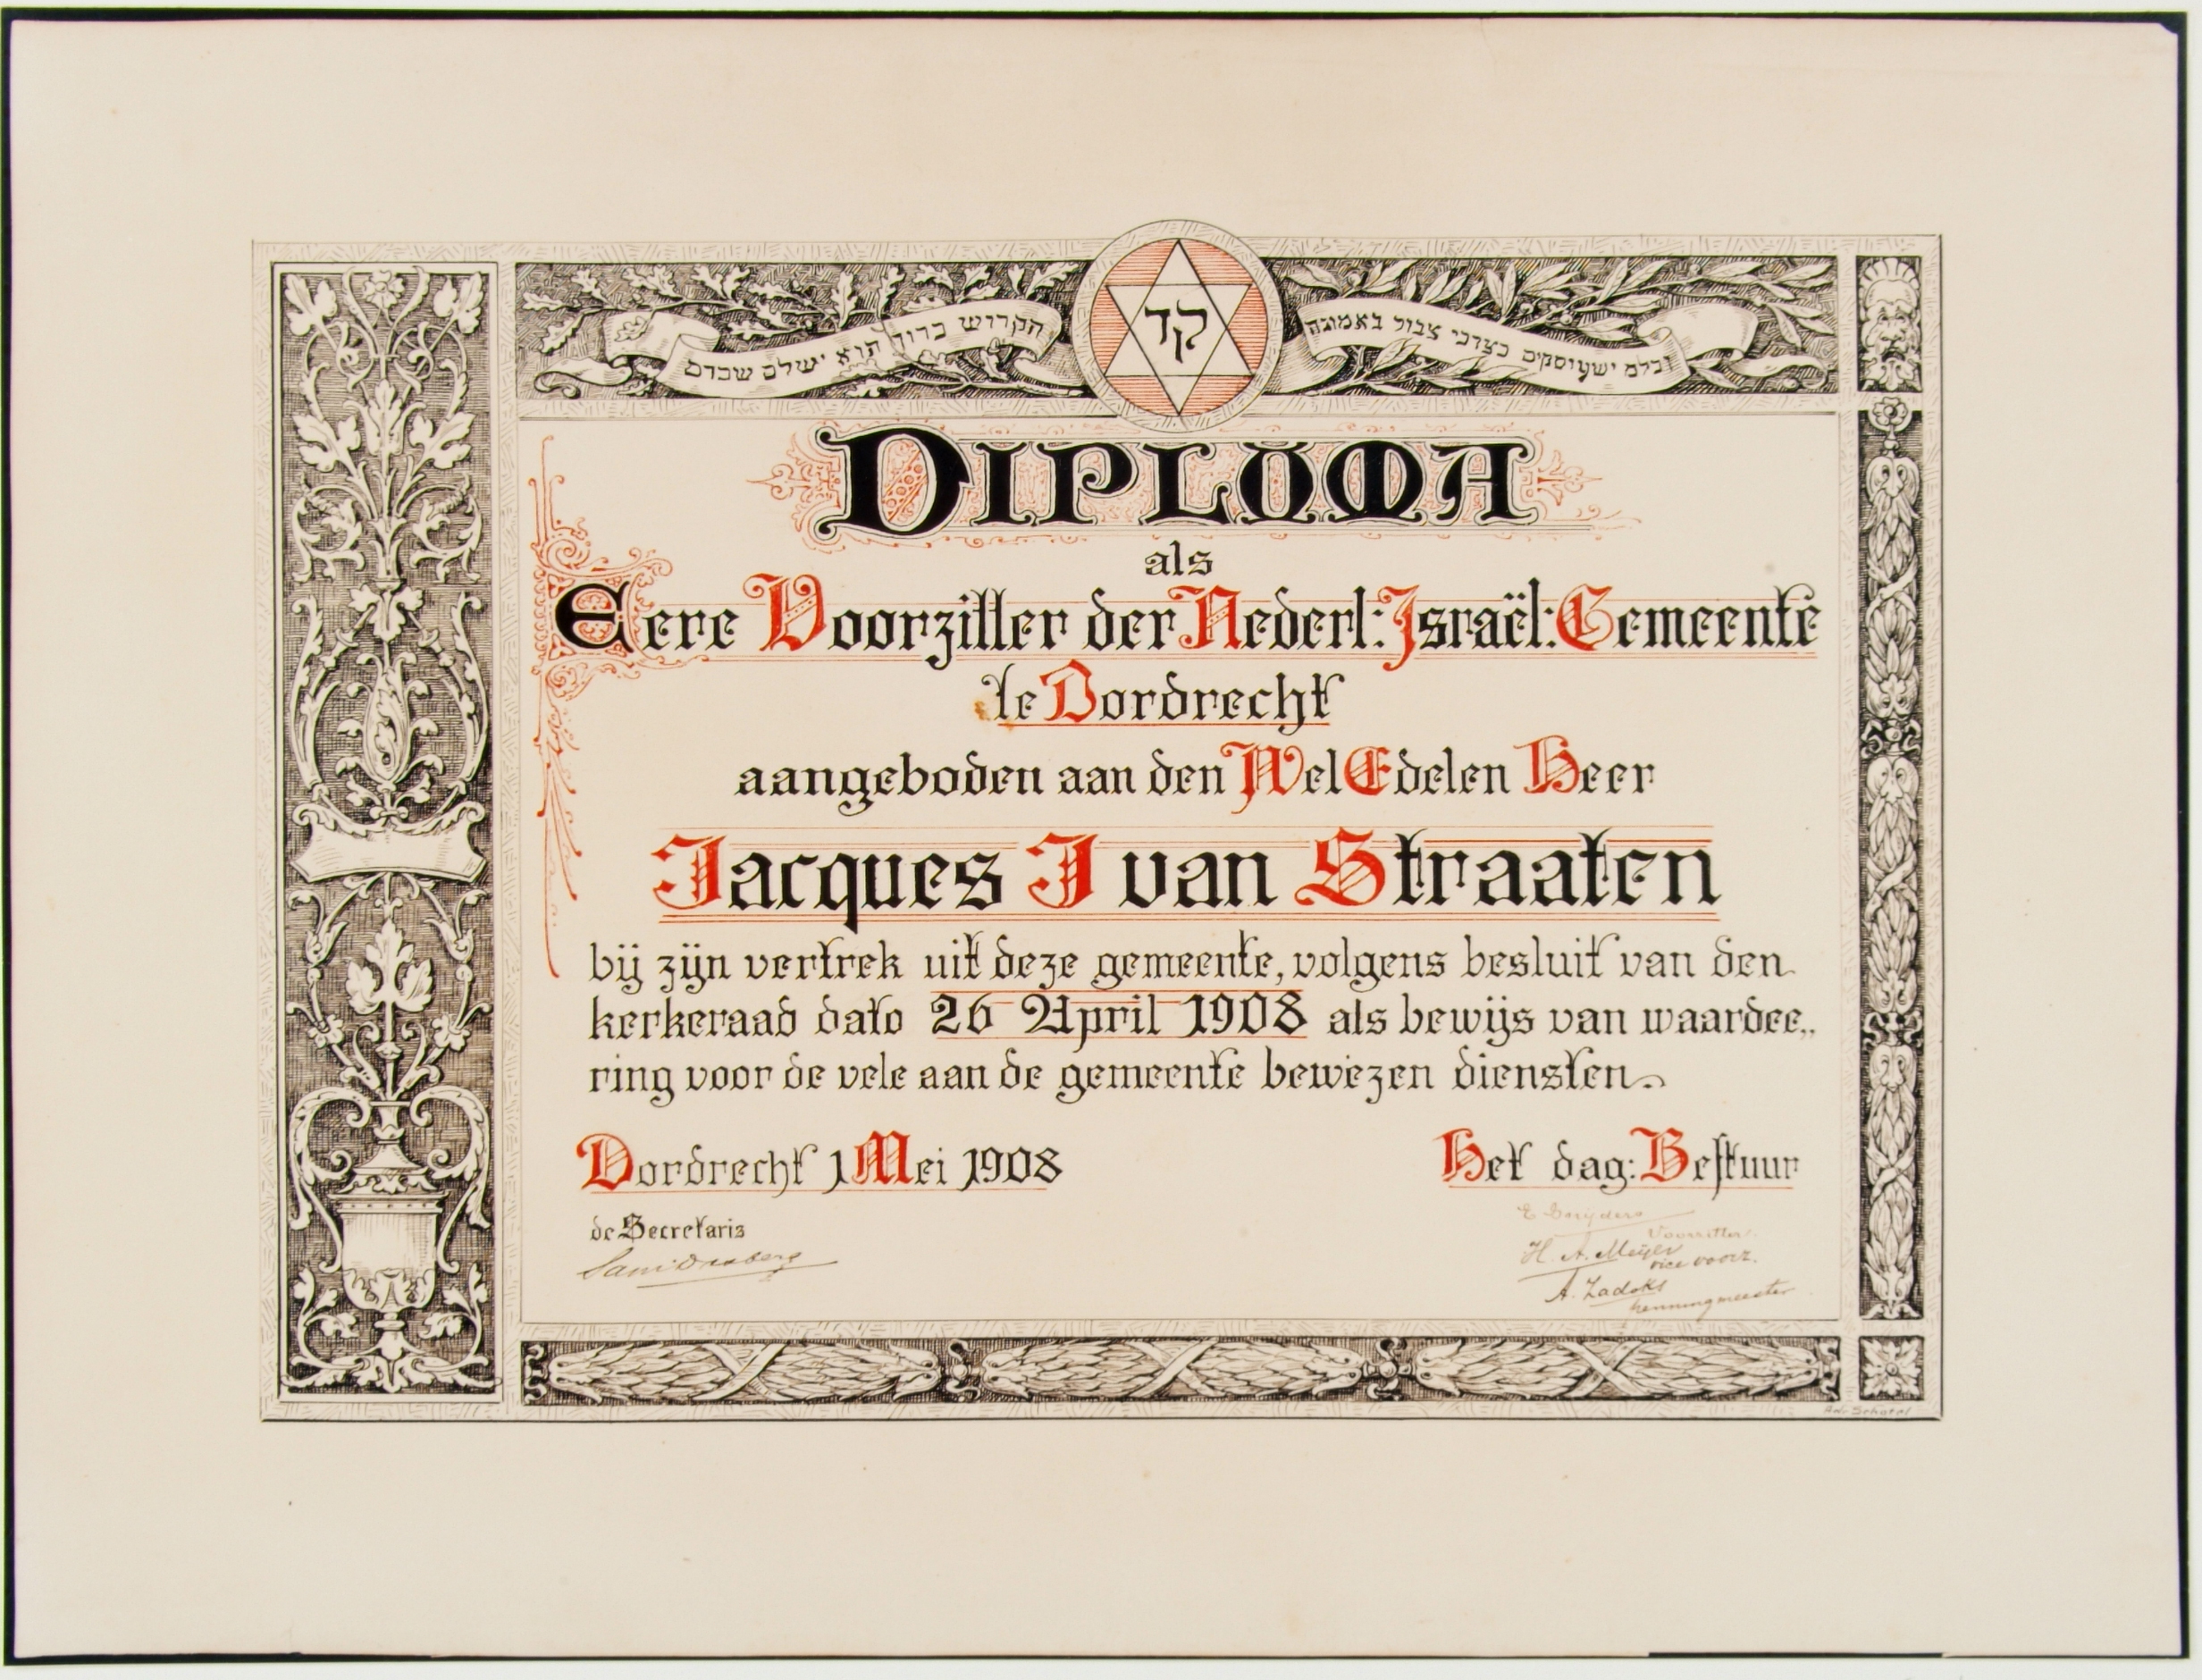 וכלם שעוסקים בצרכי צבור באמונה
קד
הקדוש ברוך הוא ישלם שכרם
DIPLOMA
als
Eere Voorzitter der Nederl: Israël: Gemeente
te Dordrecht
aangeboden aan den WelEdelen Heer
Jacques J van Straaten
bij zijn vertrek uit deze gemeente, volgens besluit van den
kerkeraad dato 26 April 1908 als bewijs van waardee„
ring voor de vele aan de gemeente bewezen diensten.
Dordrecht 1 Mei 1908
Het dag: Bestuur
de Secretaris
Voorzitter.
H. A. Meijer
vice voorz.
A. Zadoks
penningmeester